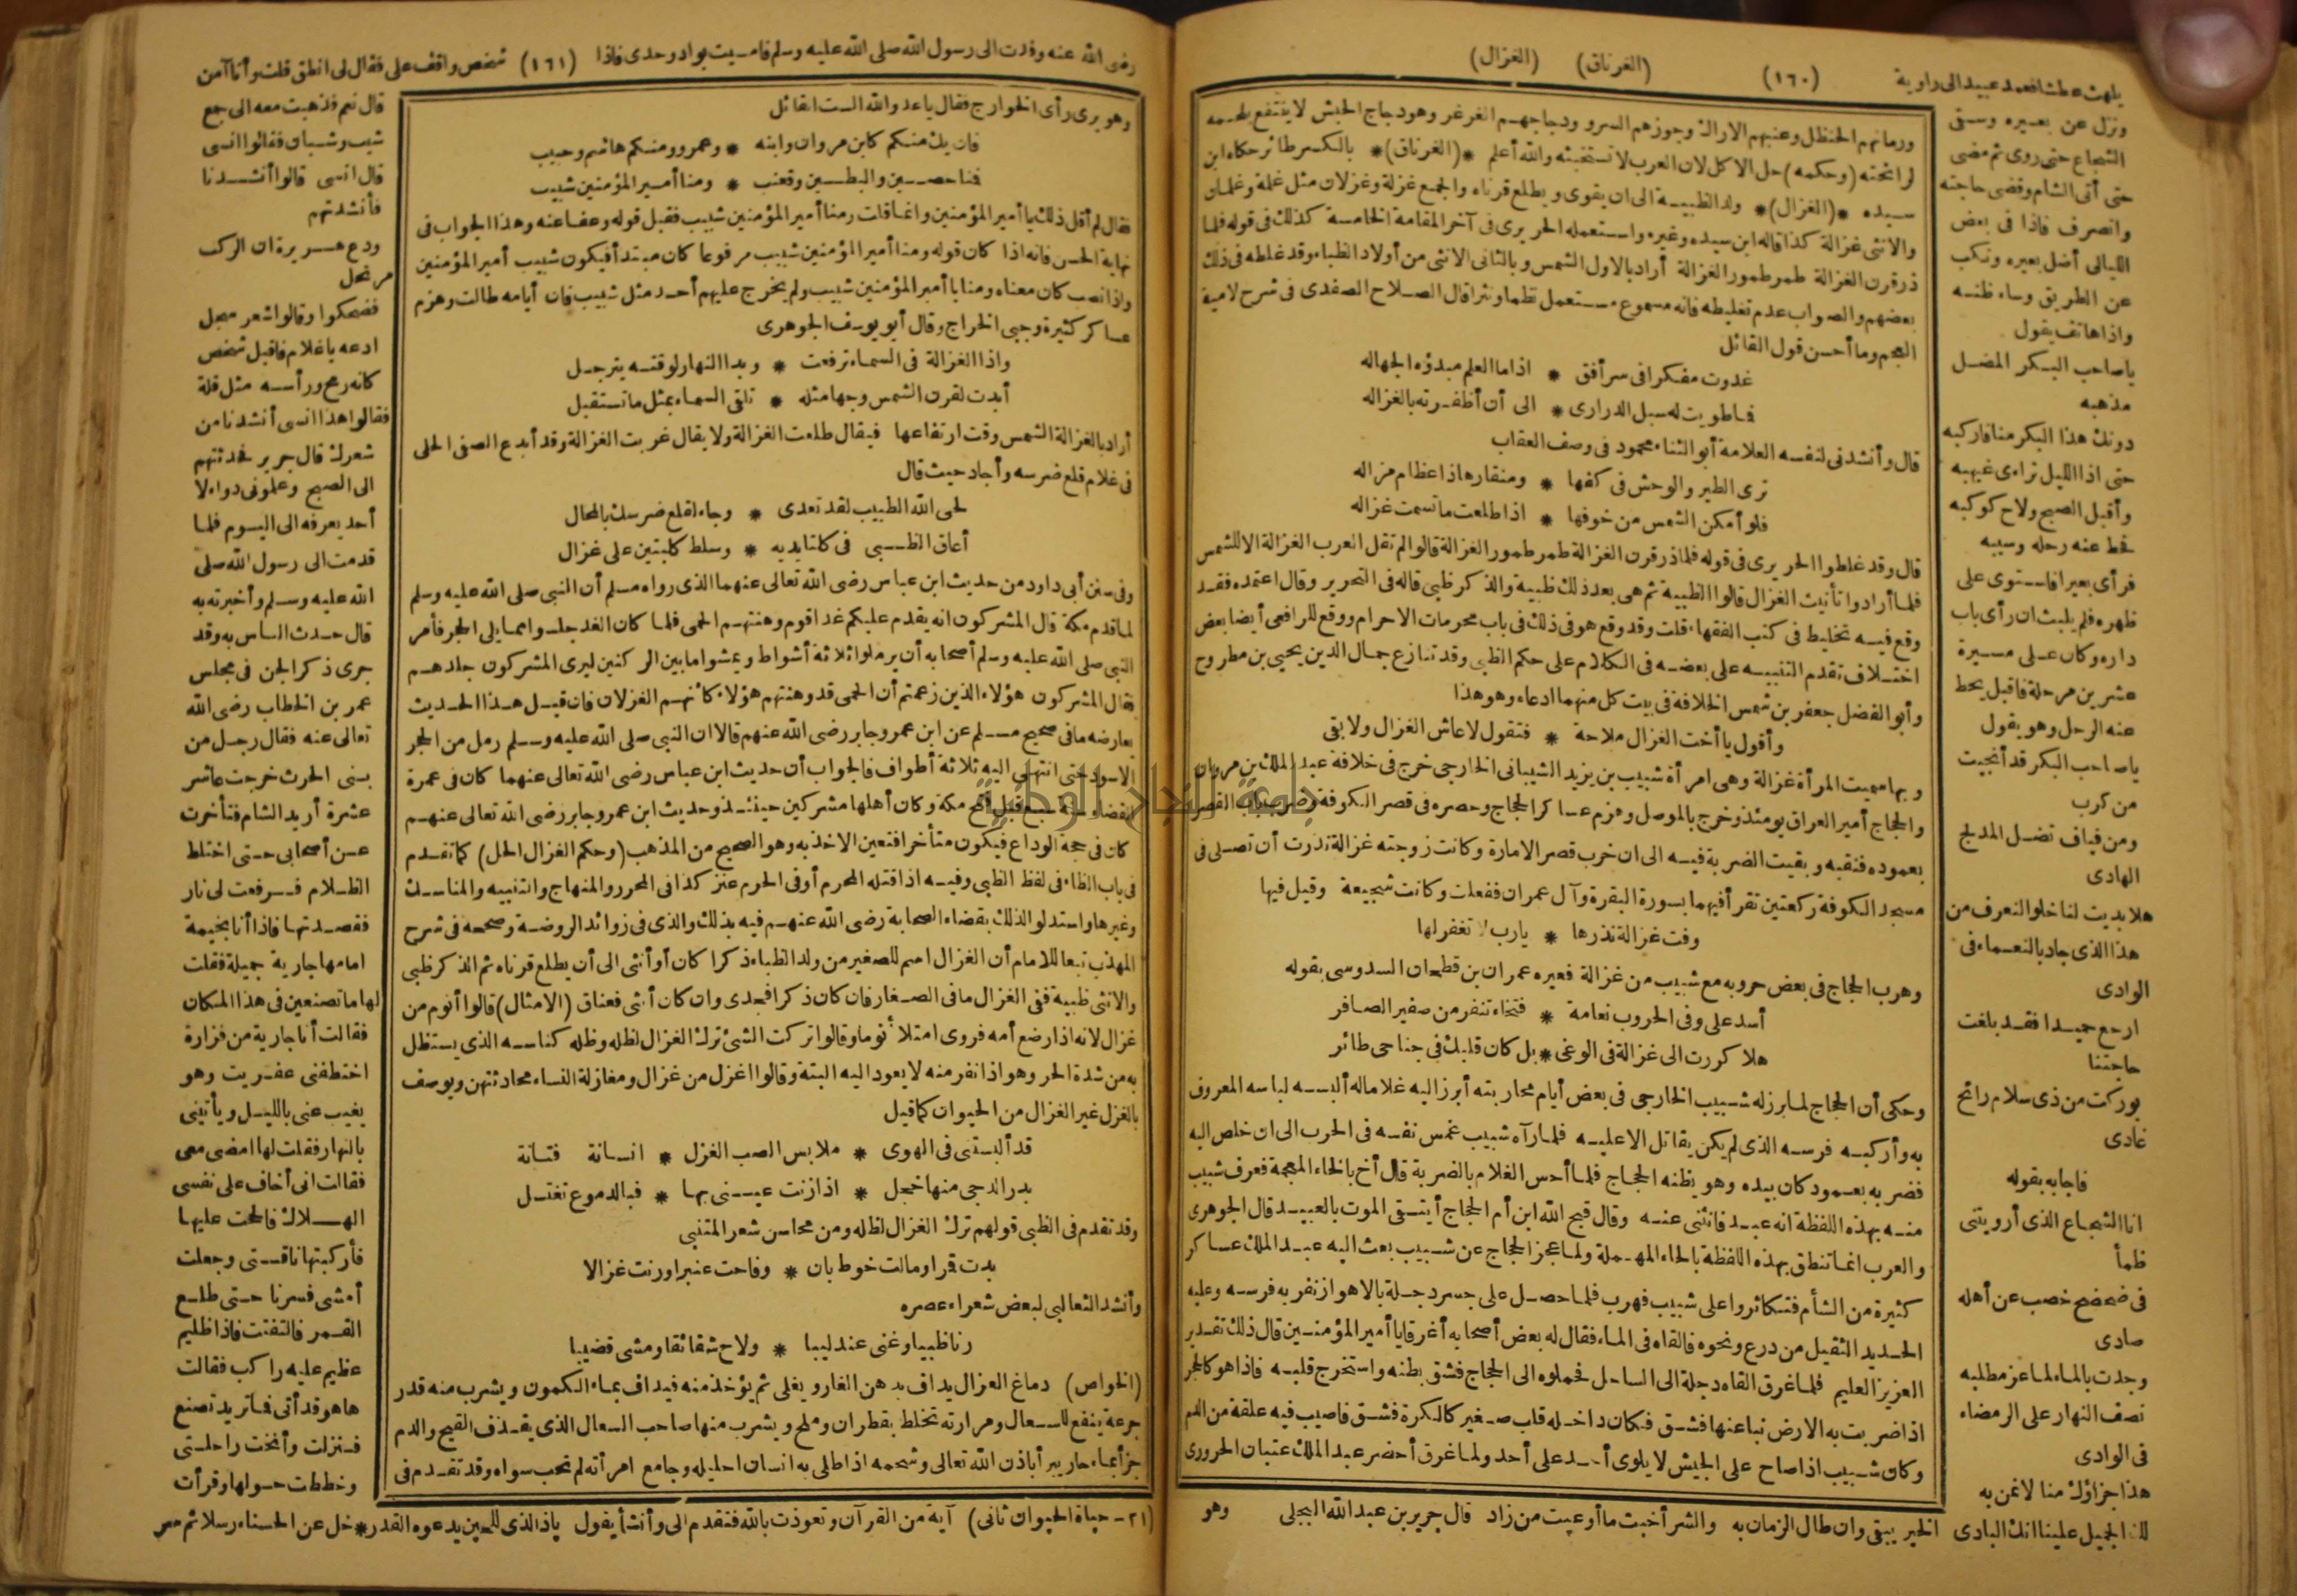 (الغرناق) (الغزال)
(١٦٠)
يلهث عطشا فعمد عبيد الى راوية
ونزل عن بعيره وسقى
الشجاع حتى روى ثم مضى
حتى أتى الشام وقضى حاجته
وانصرف فاذا فى بعض
الليالى أضل بعيره ونكب
عن الطريق وساء ظنه
واذا هاتف يقول
يا صاحب البكر المضل
مذهبه
دونك هذا البكر منا فاركبه
حتى اذا الليل تراءى غيهبه
وأقبل الصبح ولاح كوكبه
فحط عنه رحله وسيبه
فرأى بعيرا فاستوى على
ظهره فلم يلبث ان رأى باب
داره وكان على مسيرة
عشرين مرحلة فاقبل يحط
عنه الرحل وهو يقول
يا صاحب البكر قد أنجيت
من كرب
ومن فياف تضل المدلج
الهادى
هلا بديت لنا خلوا لنعرف من
هذا الذى جاد بالنعماء فى
الوادى
ارجع حميدا فقد بلغت
حاجتنا
بوركت من ذى سلام رائح
غادى
فاجابه بقوله
انا الشجاع الذى أرويتنى
ظمأ
فى ضحضح خصب عن أهله
صادى
وجدت بالماء لما عز مطلبه
نصف النهار على الرمضاء
فى الوادى
هذا جزاؤك منا لا نمن به
لك الجميل علينا انك البادى الخير يبقى وان طال الزمان به والشر أخبث ما أوعيت من زاد قال جرير بن عبد الله البجلى
ورمانهم الحنظل وعنبهم الاراك وجوزهم السرو ودجاجهم الغرغر وهو دجاج الحبش لا ينتفع بلحمه
لرائحته (وحكمه) حل الاكل لان العرب لا تستخبثه والله أعلم *(الغرناق)* بالكسر طائر حكاه ابن
سيده *(الغزال)* ولد الظبية الى ان يقوى ويطلع قرناه والجمع غزلة وغزلان مثل غلمة وغلمان
والانثى غزالة كذا قاله ابن سيده وغيره واستعمله الحريرى فى آخر المقامة الخامسة كذلك فى قوله فلما
ذر قرن الغزالة طمر طمور الغزالة أراد بالاول الشمس وبالثانى الانثى من أولاد الظباء وقد غلطه فى ذلك
بعضهم والصواب عدم تغليطه فانه مسموع مستعمل نظما ونثرا قال الصلاح الصفدى فى شرح لامية
العجم وما أحسن قول القائل
غدوت مفكرا فى سر أفق * اذا ما العلم مبدؤه الجهاله
فما طويت له سبل الدرارى * الى أن أظفرته بالغزاله
قال وأنشدنى لنفسه العلامة أبو الثناء محمود فى وصف العقاب
ترى الطير والوحش فى كفها * ومنقارها ذا عظام مزاله
فلو أمكن الشمس من خوفها * اذا طلعت ما تسمت غزاله
قال وقد غلطوا الحريرى فى قوله فلما ذر قرن الغزالة طمر طمور الغزالة قالوا لم تقل العرب الغزالة الا للشمس
فلما أرادوا تأنيث الغزال قالوا الظبية ثم هى بعد ذلك ظبية والذكر ظبى قاله فى التحرير وقال اعتمده فقد
وقع فيه تخليط فى كتب الفقهاء قلت وقد وقع هو فى ذلك فى باب محرمات الاحرام ووقع للرافعى أيضا بعض
اختلاف تقدم التنبيه على بعضه فى الكلام على حكم الظبى وقد تنازع جمال الدين يحيى بن مطروح
وأبو الفضل جعفر بن شمس الخلافة فى بيت كل منهما ادعاه وهو هذا
وأقول يا أخت الغزال ملاحة * فتقول لا عاش الغزال ولا بقى
وبها سميت المرأة غزالة وهى امرأة شبيب بن يزيد الشيبانى الخارجى خرج فى خلافة عبد الملك بن مروان
والحجاج أمير العراق يومئذ وخرج بالموصل وهزم عساكر الحجاج وحصره فى قصر الكوفة وضرب باب القصر
بعموده فنقبه وبقيت الضربة فيه الى ان خرب قصر الامارة وكانت زوجته غزالة نذرت أن تصلى فى
مسجد الكوفة ركعتين تقرأ فيهما بسورة البقرة وآل عمران ففعلت وكانت شجيعة وقيل فيها
وفت غزالة نذرها * يارب لا تغفر لها
وهرب الحجاج فى بعض حروبه مع شبيب من غزالة فعيره عمران بن قطعان السدوسى بقوله
أسد على وفى الحروب نعامة * فتخاء تنفر من صفير الصافر
هلا كررت الى غزالة فى الوغى * بل كان قلبك فى جناحى طائر
وحكى أن الحجاج لما برز له شبيب الخارجى فى بعض أيام محاربته أبرز اليه غلاما له ألبسه لباسه المعروف
به وأركبه فرسه الذى لم يكن يقاتل الا عليه فلما رآه شبيب غمس نفسه فى الحرب الى ان خلص اليه
فضربه بعمود كان بيده وهو يظنه الحجاج فلما أحس الغلام بالضربة قال أخ بالخاء المعجمة فعرف شبيب
منه بهذه اللفظة انه عبد فانثنى عنه وقال قبح الله ابن أم الحجاج أيتقى الموت بالعبيد قال الجوهرى
والعرب انما تنطق بهذه اللفظة بالحاء المهملة ولما عجز الحجاج عن شبيب بعث اليه عبد الملك عساكر
كثيرة من الشأم فتكاثروا على شبيب فهرب فلما حصل على جسر دجلة بالاهواز نفر به فرسه وعليه
الحديد الثقيل من درع ونحوه فالقاه فى الماء فقال له بعض أصحابه أغرقا يا أمير المؤمنين قال ذلك تقدير
العزيز العليم فلما غرق القاه دجلة الى الساحل فحملوه الى الحجاج فشق بطنه واستخرج قلبه فاذا هو كالحجر
اذا ضربت به الارض نبا عنها فشق فكان داخله قلب صغير كالكرة فشق فاصيب فيه علقة من الدم
وكان شبيب اذا صاح على الجيش لا يلوى أحد على أحد ولما غرق أحضر عبد الملك عتبان الحرورى
وهو
رضى الله عنه وفدت الى رسول الله صلى الله عليه وسلم فامسيت بواد وحدى فاذا (١٦١) شخص واقف على فقال لى انطق قلت وأنا آمن
وهو يرى رأى الخوارج فقال يا عدو الله ألست القائل
فان يك منكم كابن مروان وابنه * وعمرو ومنكم هاشم وحبيب
فمنا حصين والبطين وقعنب * ومنا أمير المؤمنين شبيب
فقال لم أقل ذلك يا أمير المؤمنين وانما قلت ومنا أمير المؤمنين شبيب فقبل قوله وعفا عنه وهذا الجواب فى
نهاية الحسن فانه اذا كان قوله ومنا أمير المؤمنين شبيب مرفوعا كان مبتدأ فيكون شبيب أمير المؤمنين
واذا نصب كان معناه ومنا يا أمير المؤمنين شبيب ولم يخرج عليهم أحد مثل شبيب فان أيامه طالت وهزم
عساكر كثيرة وجبى الخراج وقال أبو يوسف الجوهرى
واذا الغزالة فى السماء ترفعت * وبدا النهار لوقته يترجل
أبدت لقرن الشمس وجها مثله * تلقى السماء بمثل ما تستقبل
أراد بالغزالة الشمس وقت ارتفاعها فيقال طلعت الغزالة ولا يقال غربت الغزالة وقد أبدع الصفى الحلى
فى غلام قلع ضرسه وأجاد حيث قال
لحى الله الطبيب لقد تعدى * وجاء لقلع ضرسك بالمحال
أعاق الظبى فى كلتا يديه * وسلط كلبتين على غزال
وفى سنن أبى داود من حديث ابن عباس رضى الله تعالى عنهما الذى رواه مسلم أن النبى صلى الله عليه وسلم
لما قدم مكة قال المشركون انه يقدم عليكم غدا قوم وهنتهم الحمى فلما كان الغد جلسوا مما يلى الحجر فأمر
النبى صلى الله عليه وسلم أصحابه أن يرملوا ثلاثة أشواط ويمشوا ما بين الركنين ليرى المشركون جلدهم
فقال المشركون هؤلاء الذين زعمتم أن الحمى قد وهنتهم هؤلاء كأنهم الغزلان فان قيل هذا الحديث
يعارضه ما فى صحيح مسلم عن ابن عمر وجابر رضى الله عنهم قالا ان النبى صلى الله عليه وسلم رمل من الحجر
الاسود حتى انتهى اليه ثلاثة أطواف فالجواب أن حديث ابن عباس رضى الله تعالى عنهما كان فى عمرة
القضاء سنة سبع قبل فتح مكة وكان أهلها مشركين حينئذ وحديث ابن عمر وجابر رضى الله تعالى عنهم
كان فى حجة الوداع فيكون متأخرا فتعين الاخذ به وهو الصحيح من المذهب (وحكم الغزال الحل) كما تقدم
فى باب الظاء فى لفظ الظبى وفيه اذا قتله المحرم أو فى الحرم عنز كذا فى المحرر والمنهاج والتنبيه والمناسك
وغيرها واستدلوا لذلك بقضاء الصحابة رضى الله عنهم فيه بذلك والذى فى زوائد الروضة وصححه فى شرح
المهذب تبعا للامام أن الغزال اسم للصغير من ولد الظباء ذكرا كان أو أنثى الى أن يطلع قرناه ثم الذكر ظبى
والانثى ظبية ففى الغزال ما فى الصغار فان كان ذكرا فجدى وان كان أنثى فعناق (الامثال) قالوا أنوم من
غزال لانه اذا رضع أمه فروى امتلأ نوما وقالوا تركت الشئ ترك الغزال لظله وظله كناسه الذى يستظل
به من شدة الحر وهو اذا نفر منه لا يعود اليه البتة وقالوا اغزل من غزال ومغازلة النساء محادثتهن ويوصف
بالغزل غير الغزال من الحيوان كما قيل
قد ألبستنى فى الهوى * ملابس الصب الغزل * انسانة فتانة
بدر الدجى منها خجل * اذا زنت عينى بها * فبالدموع تغتسل
وقد تقدم فى الظبى قولهم ترك الغزال لظله ومن محاسن شعر المتنبى
بدت قمرا ومالت خوط بان * وفاحت عنبرا ورنت غزالا
وأنشد الثعالبى لبعض شعراء عصره
رنا ظبيا وغنى عندليبا * ولاح شقائقا ومشى قضيبا
(الخواص) دماغ الغزال يداف بدهن الغار ويغلى ثم يؤخذ منه فيداف بماء الكمون ويشرب منه قدر
جرعة ينفع للسعال ومرارته تخلط بقطران وملح ويشرب منها صاحب السعال الذى يقذف القيح والدم
جزأ بماء حار يبرأ باذن الله تعالى وشحمه اذا طلى به انسان احليله وجامع امرأته لم تحب سواه وقد تقدم فى
قال نعم فذهبت معه الى جمع
شيب وشبان فقالوا انسى
قال انسى قالوا أنشدنا
فأنشدتهم
ودع هريرة ان الركب
مرتحل
فضحكوا وقالوا شعر مسحل
ادعه يا غلام فاقبل شخص
كانه رمح ورأسه مثل قلة
فقالوا هذا انسى أنشدنا من
شعرك قال جرير فحدثتهم
الى الصبح وعلمونى دواء لا
أحد يعرفه الى اليوم فلما
قدمت الى رسول الله صلى
الله عليه وسلم وأخبرته به
قال حدث الناس به وقد
جرى ذكر الجن فى مجلس
عمر بن الخطاب رضى الله
تعالى عنه فقال رجل من
بنى الحرث خرجت عاشر
عشرة أريد الشام فتأخرت
عن أصحابى حتى اختلط
الظلام فرفعت لى نار
فقصدتها فاذا أنا بخيمة
امامها جارية جميلة فقلت
لها ما تصنعين فى هذا المكان
فقالت أنا جارية من فزارة
اختطفنى عفريت وهو
يغيب عنى بالليل ويأتينى
بالنهار فقلت لها امضى معى
فقالت انى أخاف على نفسى
الهلاك فالحت عليها
فأركبتها ناقتى وجعلت
أمشى فسرنا حتى طلع
القمر فالتفت فاذا ظليم
عظيم عليه راكب فقالت
ها هو قد أتى فما تريد تصنع
فنزلت وأنخت راحلتى
وخططت حولها وقرأت
(٢١ - حياة الحيوان ثانى) آية من القرآن وتعوذت بالله فتقدم الى وأنشأ يقول يا ذا الذى للحين يدعوه القدر * خل عن الحسناء رسلا ثم سر
جامعة النجاح الوطنية